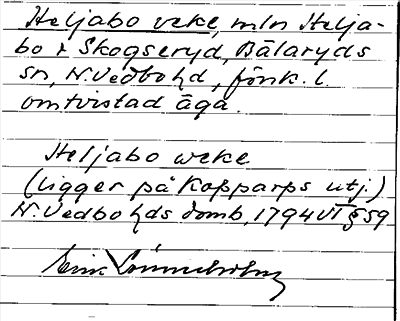 Heljabo veke, mln Helja-
bo & Skogseryd, Bälaryds
sn, N. Vedbo hd, förk. l.
omtvistad äga.
Heljabo weke
(ligger på Kopparps utj.)
N. Vedbo hds domb, 1794 VI § 59
Erik